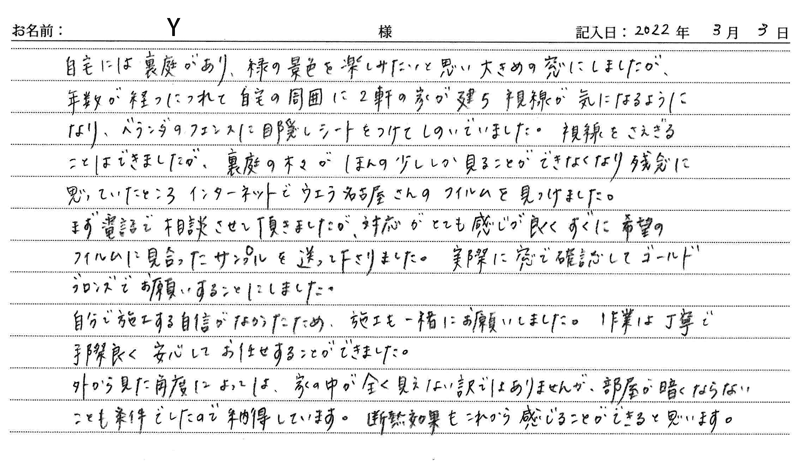 お名前： Y 様 記入日：2022年 3月 3日
自宅には裏庭があり、緑の景色を楽しみたいと思い大きめの窓にしましたが、
年数が経つにつれて自宅の周囲に2軒の家が建ち視線が気になるように
なり、ベランダのフェンスに目隠しシートをつけてしのいでいました。視線をさえぎる
ことはできましたが、裏庭の木々がほんの少ししか見ることができなくなり残念に
思っていたところインターネットでウエラ名古屋さんのフイルムを見つけました。
まず電話で相談させて頂きましたが、対応がとても感じが良くすぐに希望の
フイルムに見合ったサンプルを送って下さりました。実際に窓で確認してゴールド
ブロンズでお願いすることにしました。
自分で施工する自信がなかったため、施工も一緒にお願いしました。作業は丁寧で
手際良く安心してお任せすることができました。
外から見た角度によっては、家の中が全く見えない訳ではありませんが、部屋が暗くならない
ことも条件でしたので納得しています。断熱効果もこれから感じることができると思います。